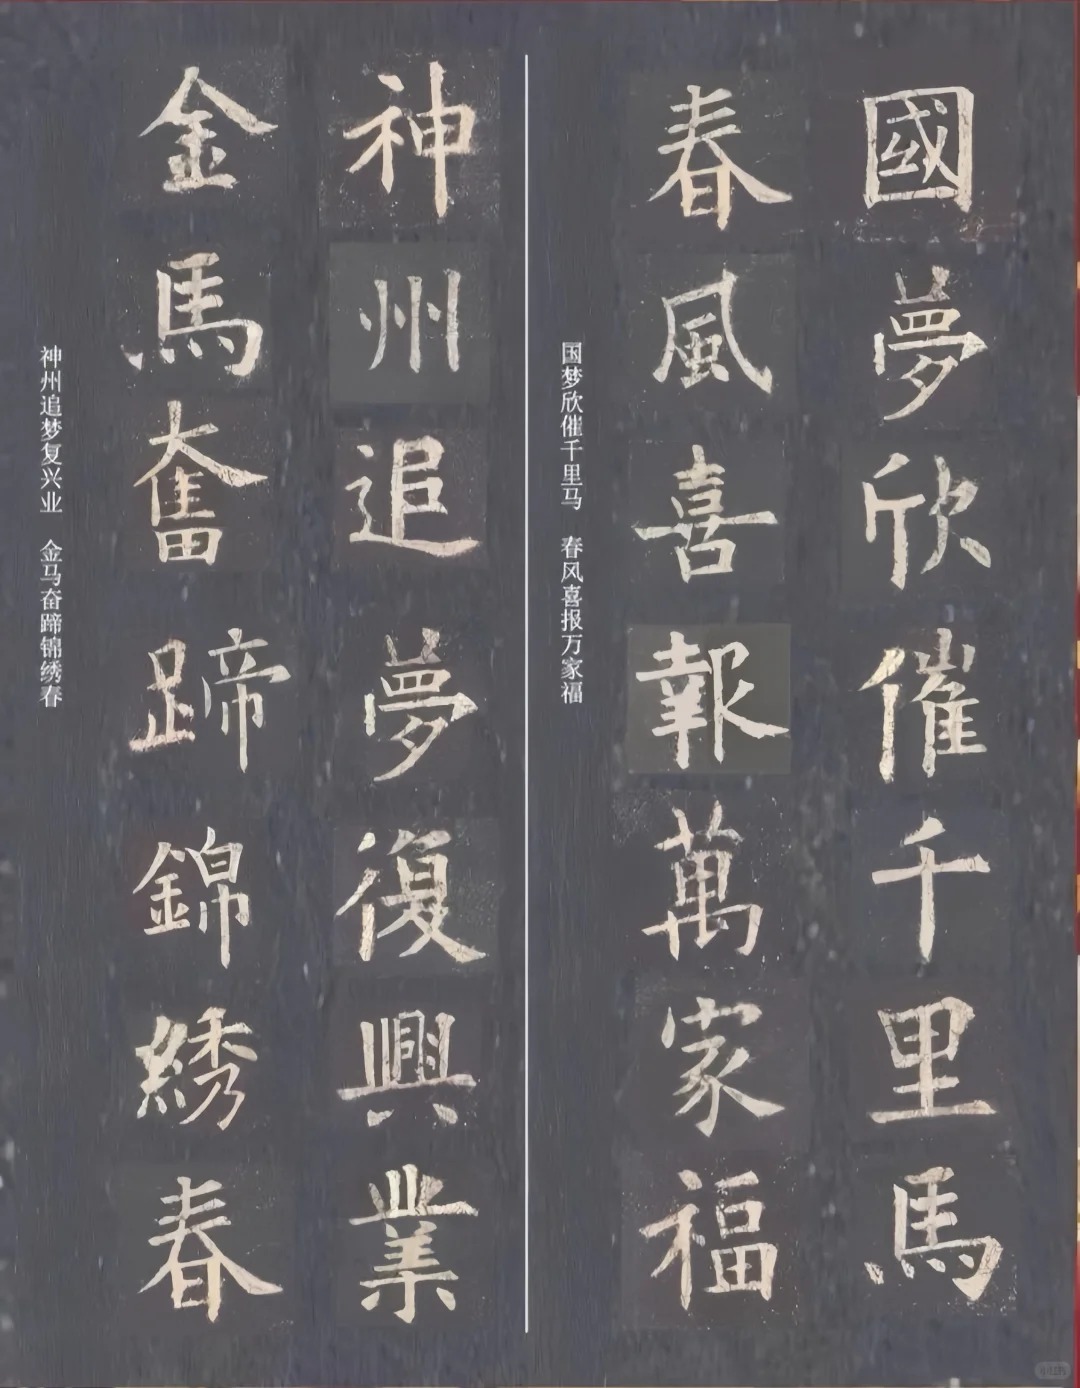 國夢欣催千里馬
春風喜報萬家福
国梦欣催千里马　春风喜报万家福
神州追夢復興業
金馬奮蹄錦綉春
神州追梦复兴业　金马奋蹄锦绣春